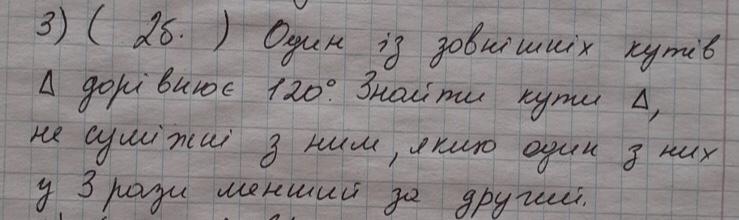 3) ( 2б. ) Один із зовнішніх кутів
Δ дорівнює 120°. Знайти кути Δ,
не суміжні з ним, якщо один з них
у 3 рази менший за другий.